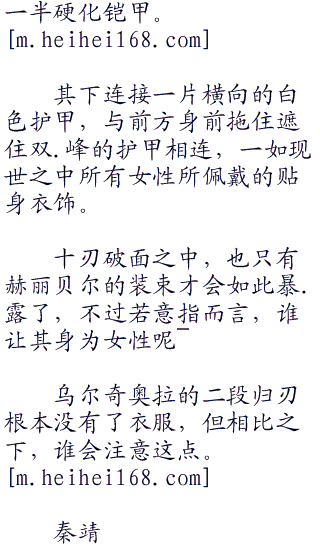 一半硬化铠甲。
[m.heihei168.com]
其下连接一片横向的白
色护甲，与前方身前拖住遮
住双.峰的护甲相连，一如现
世之中所有女性所佩戴的贴
身衣饰。
十刃破面之中，也只有
赫丽贝尔的装束才会如此暴.
露了，不过若意指而言，谁
让其身为女性呢_
乌尔奇奥拉的二段归刃
根本没有了衣服，但相比之
下，谁会注意这点。
[m.heihei168.com]
秦靖